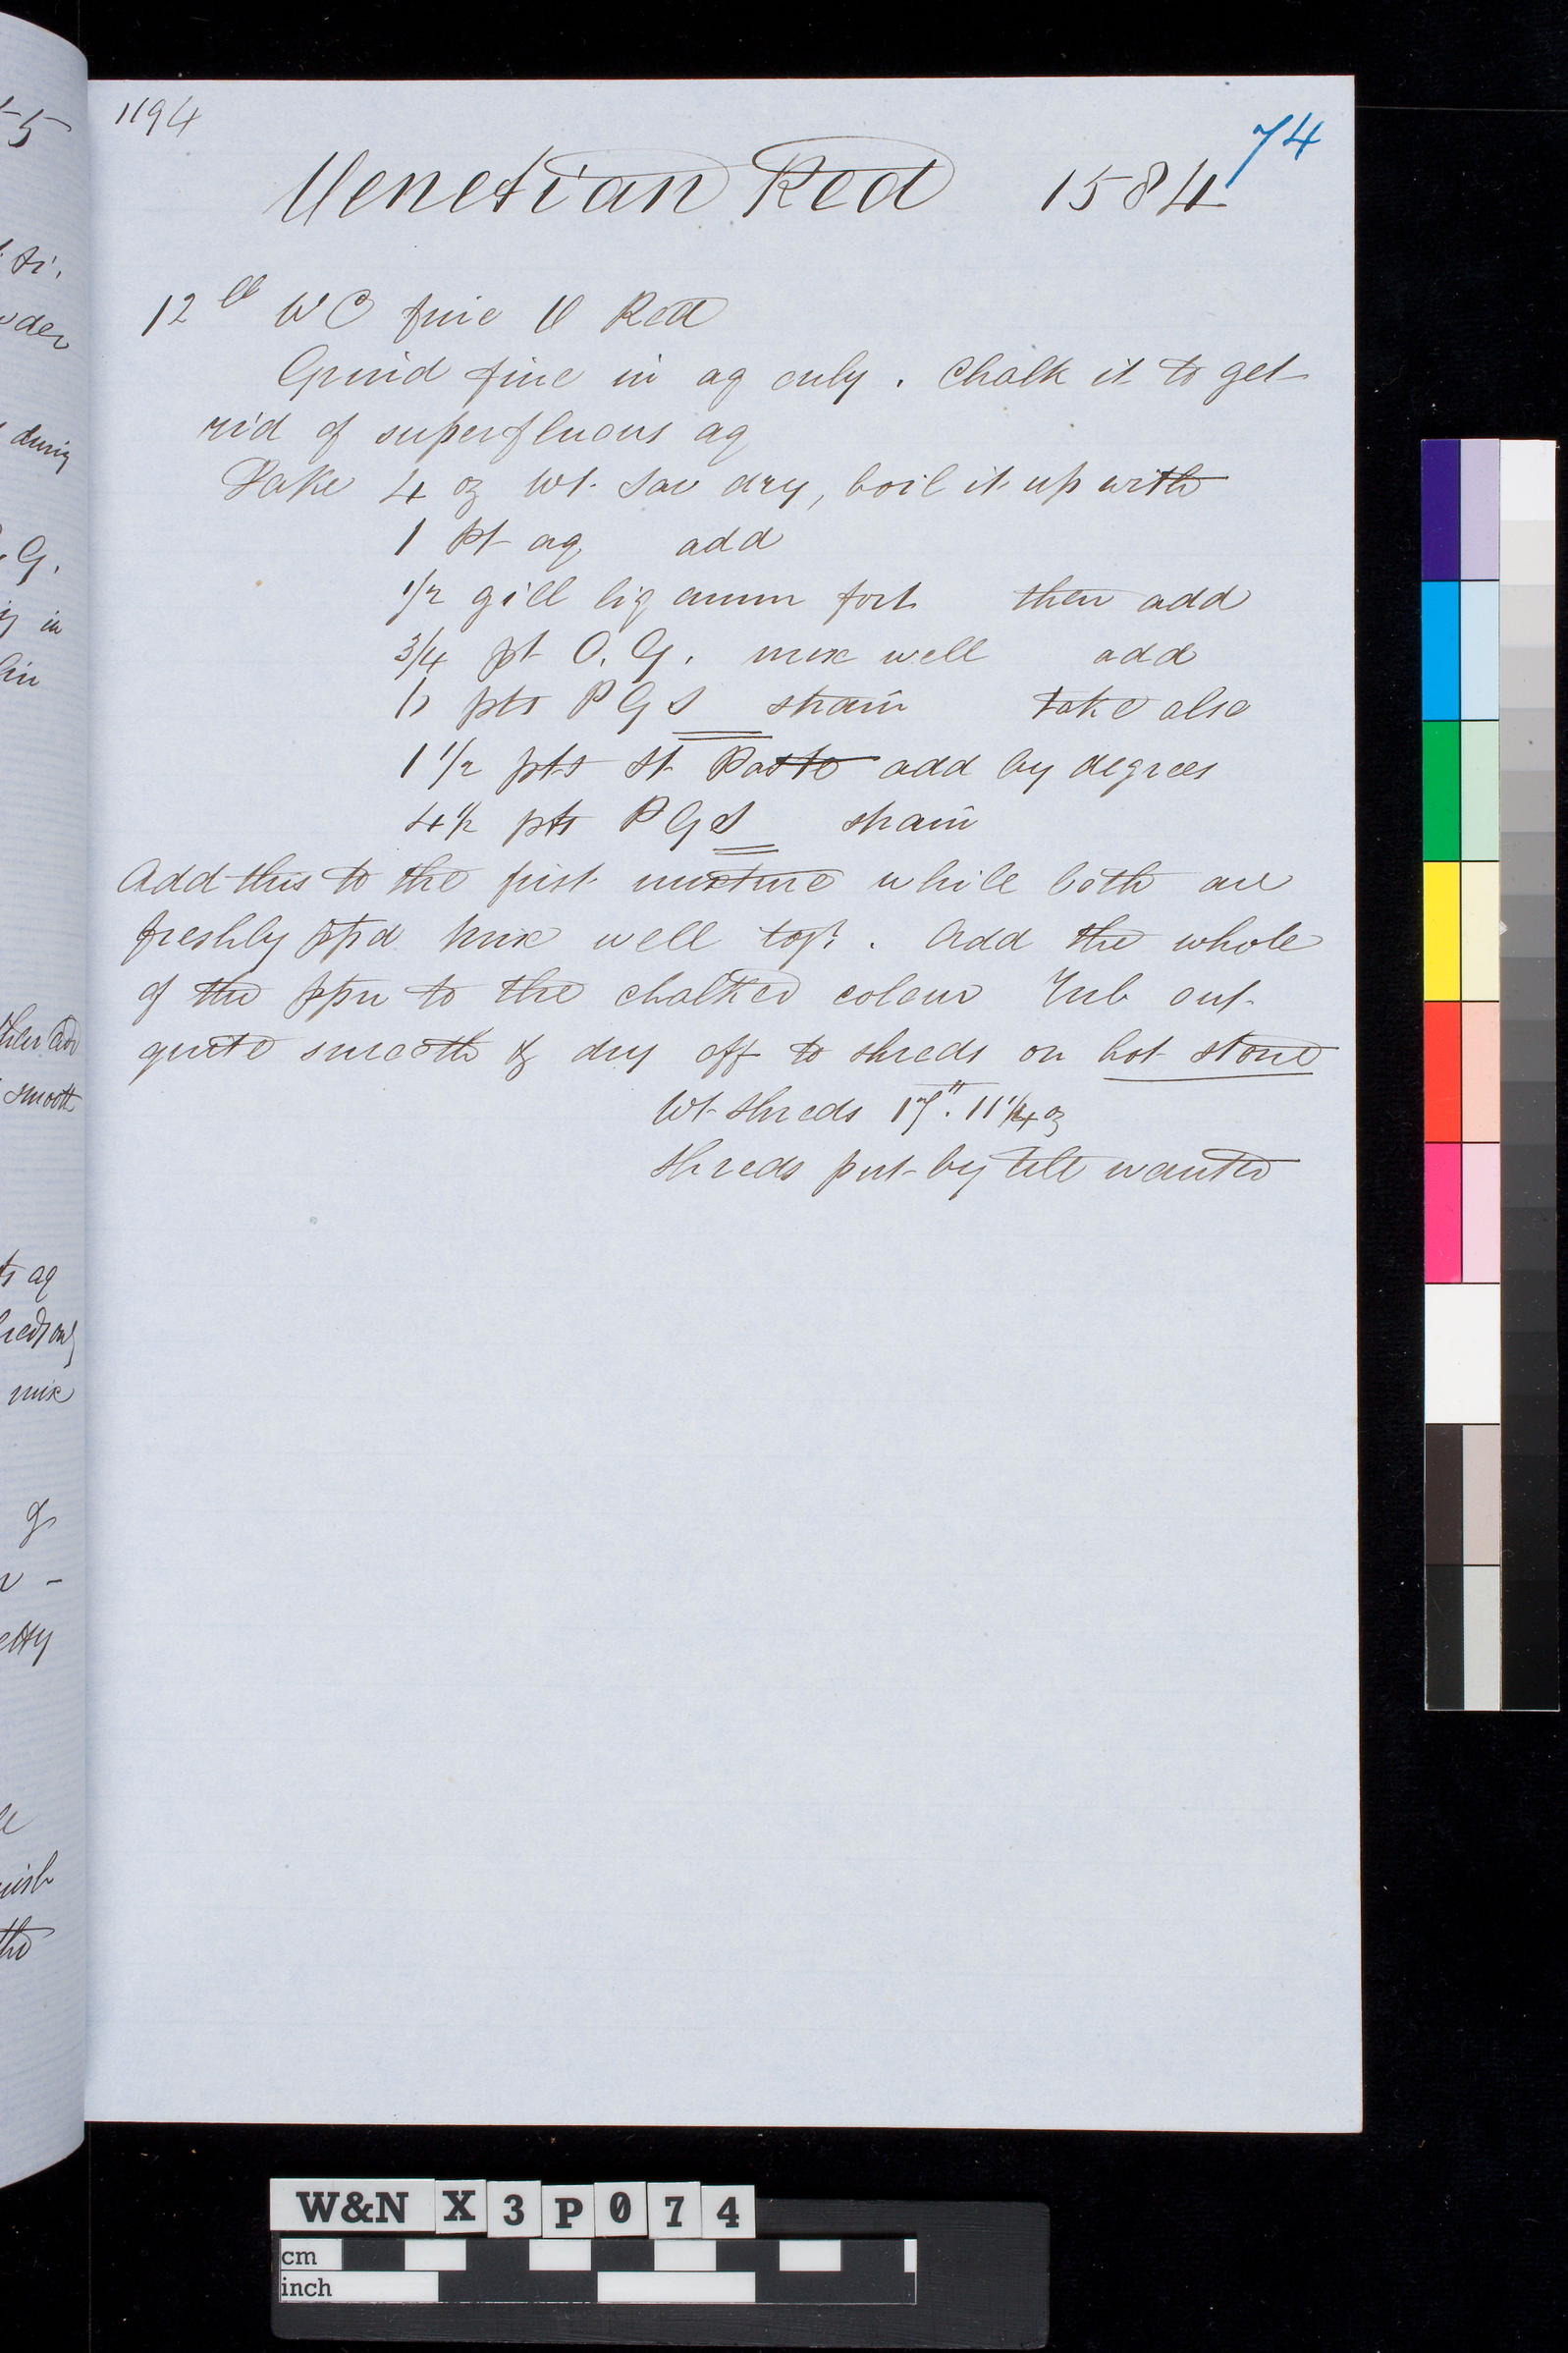 1194
74
Venetian Red 1584
12 lb W C fine V Red
Grind fine in aq only . Chalk it to get
rid of superfluous aq
Take 4 oz Wt. Sav dry, boil it up with
1 pt aq add
1/2 gill liq amm fort then add
3/4 pt O. G. mix well add
pts P G S strain take also
1 1/2 pts St. Paste add by degrees
4 1/2 pts P G S strain
Add this to the first mixture while both are
freshly ppd mix well togr . Add the whole
of the ppn to the chalked colour Rub out
quite smooth & dry off to shreds on hot stone
Wt. shreds 17". 11 1/4 oz
Shreds put by till wanted
-5
during
G.
in
smooth
aq
mix
g
the
W&N X 3 P 0 7 4
cm
inch